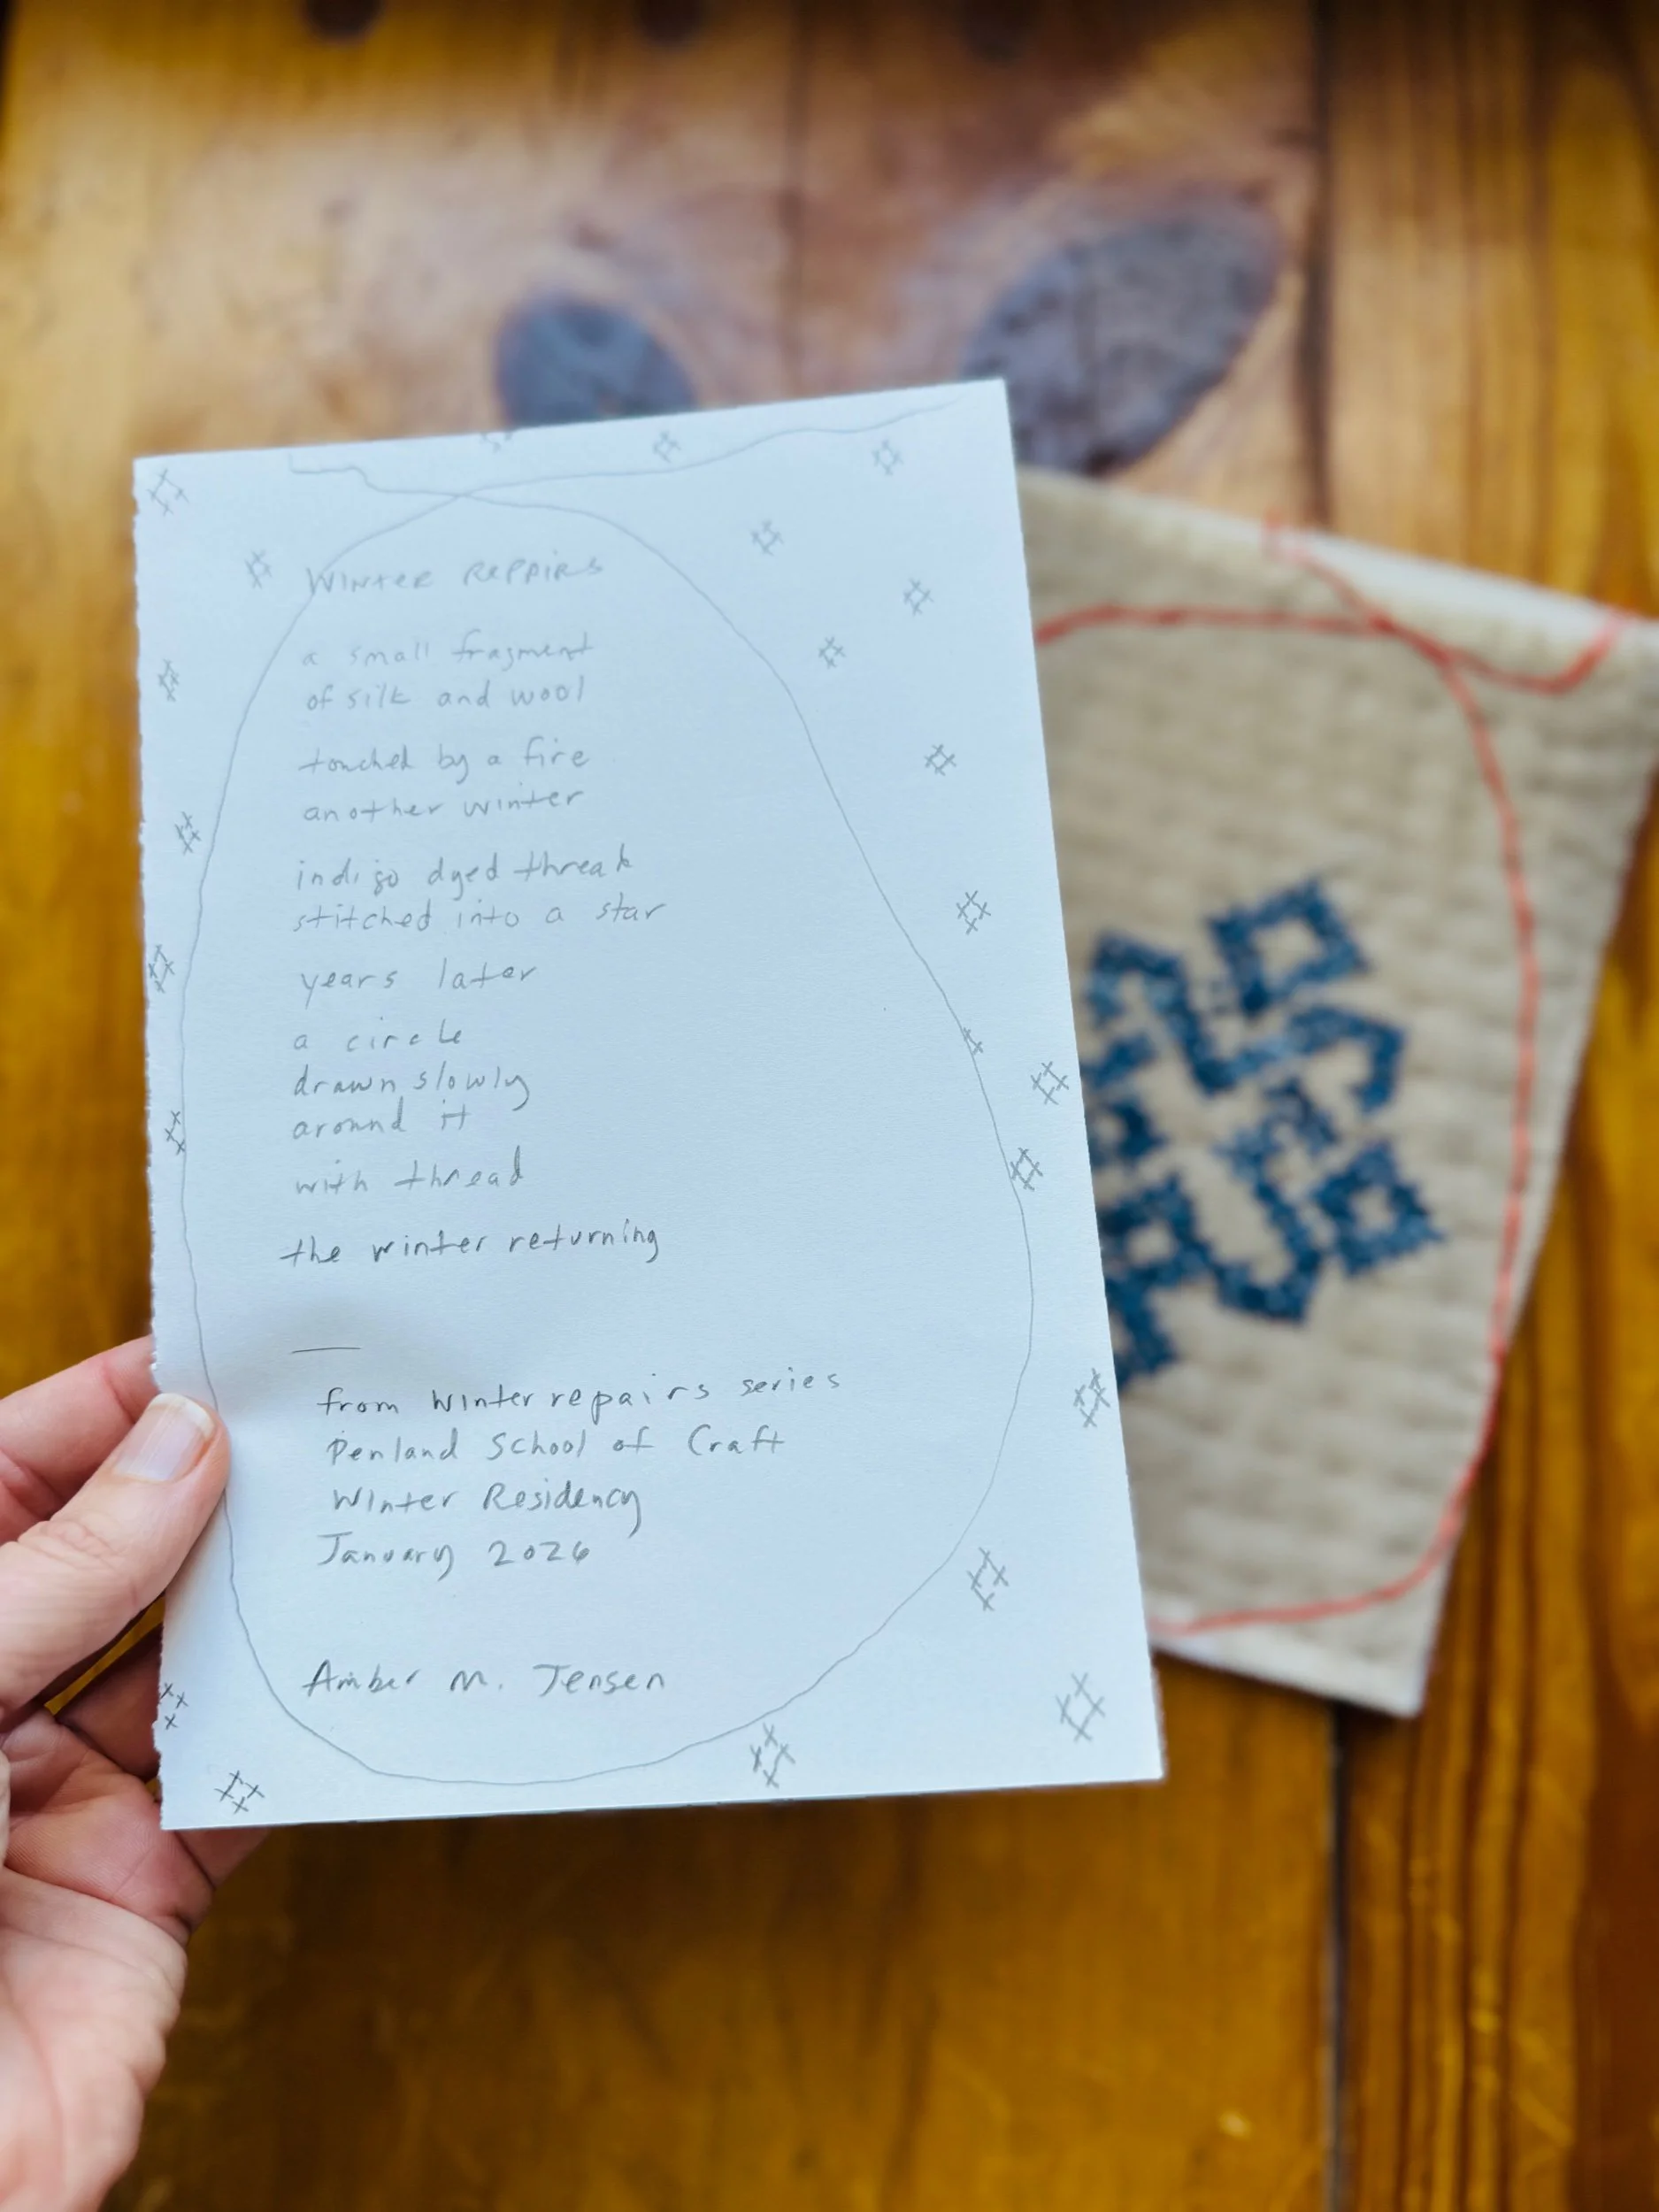 WINTER REPAIRS
a small fragment
of silk and wool
touched by a fire
another winter
indigo dyed thread
stitched into a star
years later
a circle
drawn slowly
around it
with thread
the winter returning
from Winter repairs series
Penland School of Craft
Winter Residency
January 2026
Amber M. Jensen